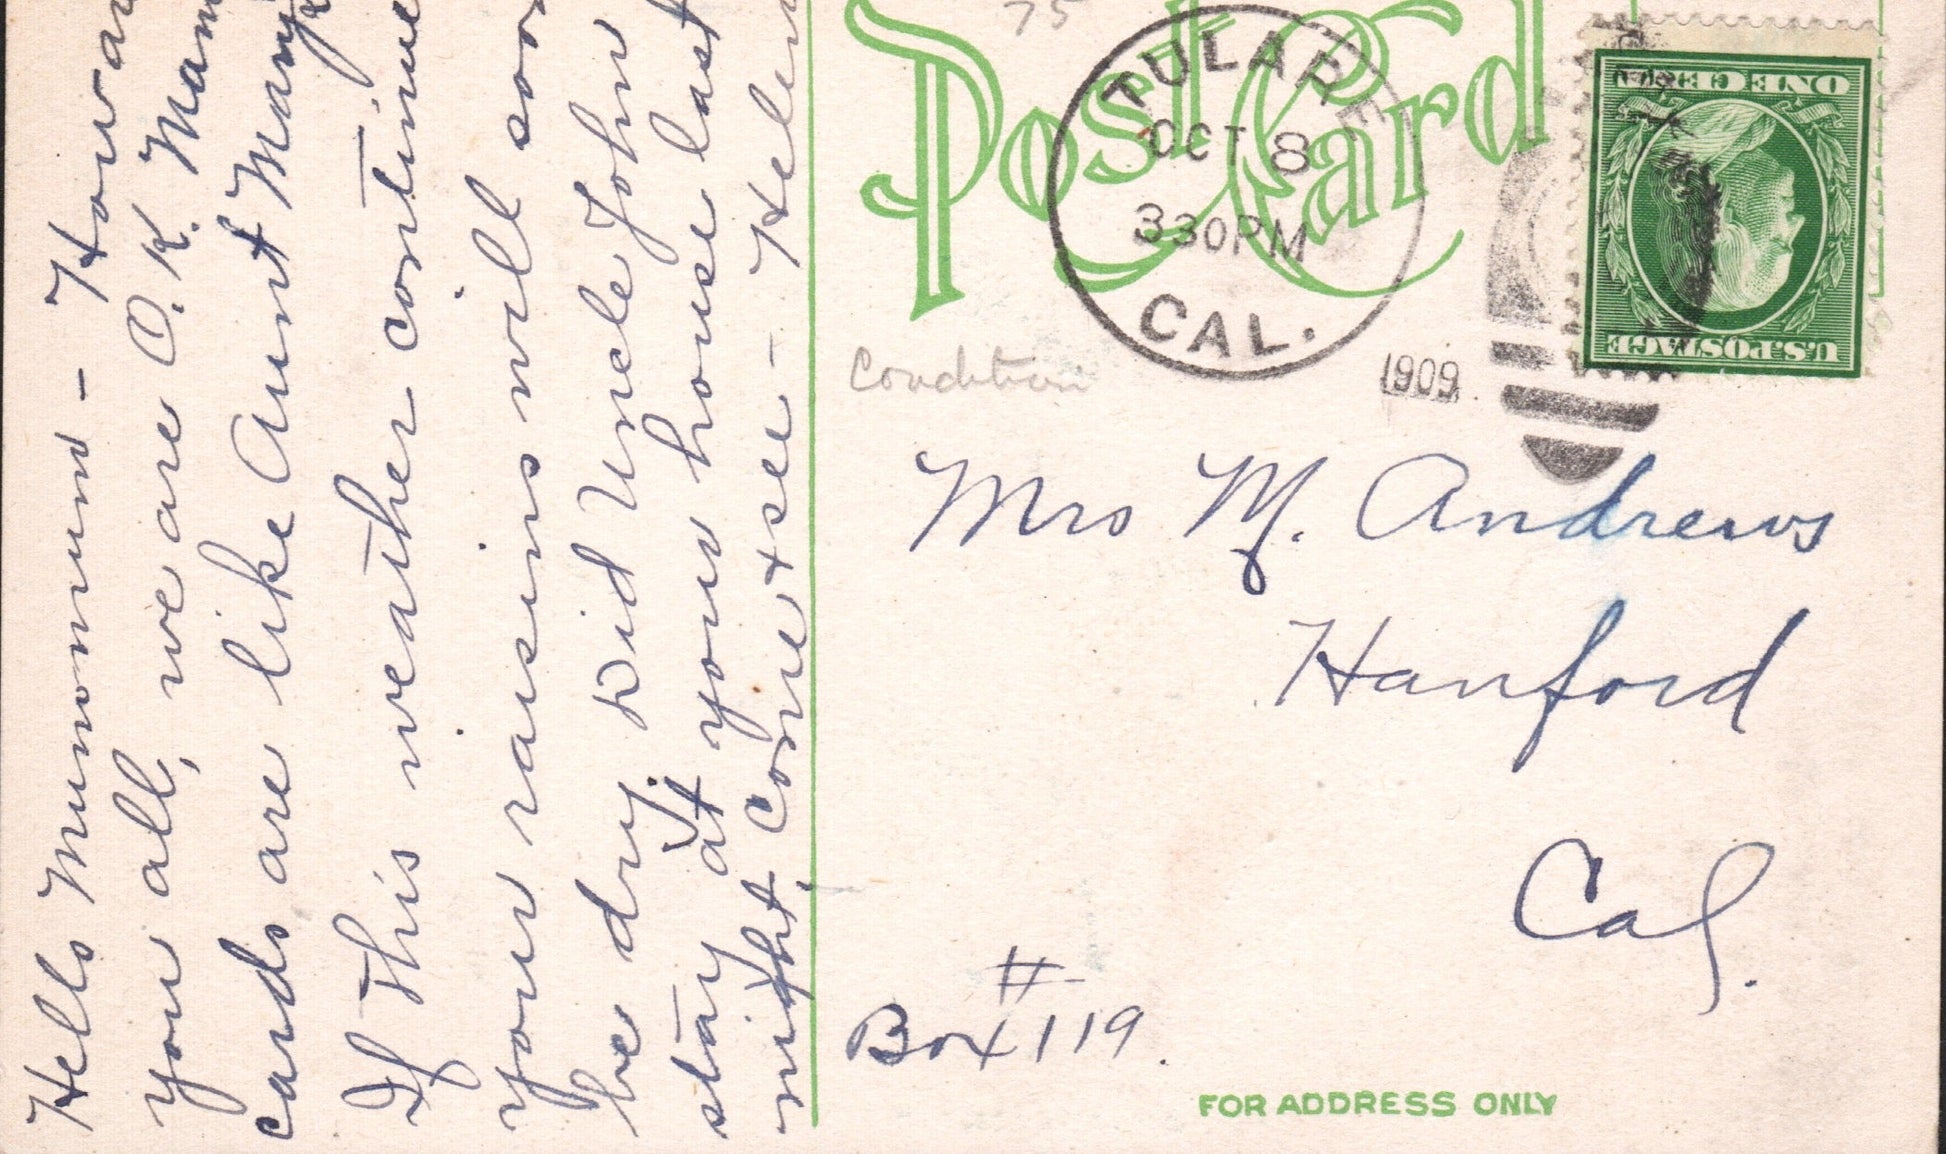 Hello Mumomum - Howar
you all, we are O.K. Mam
cards are like Aunt Mary
If this weather continue
your raisins will soo
be dry. Did Uncle John
stay at your house last
night, come & see - Helen
75
Post Card
TULARE
OCT 8
330PM
CAL.
1909
ONE CENT
U.S. POSTAGE
Condition
Mrs M. Andrews
Hanford
Cal.
Box # 119.
FOR ADDRESS ONLY